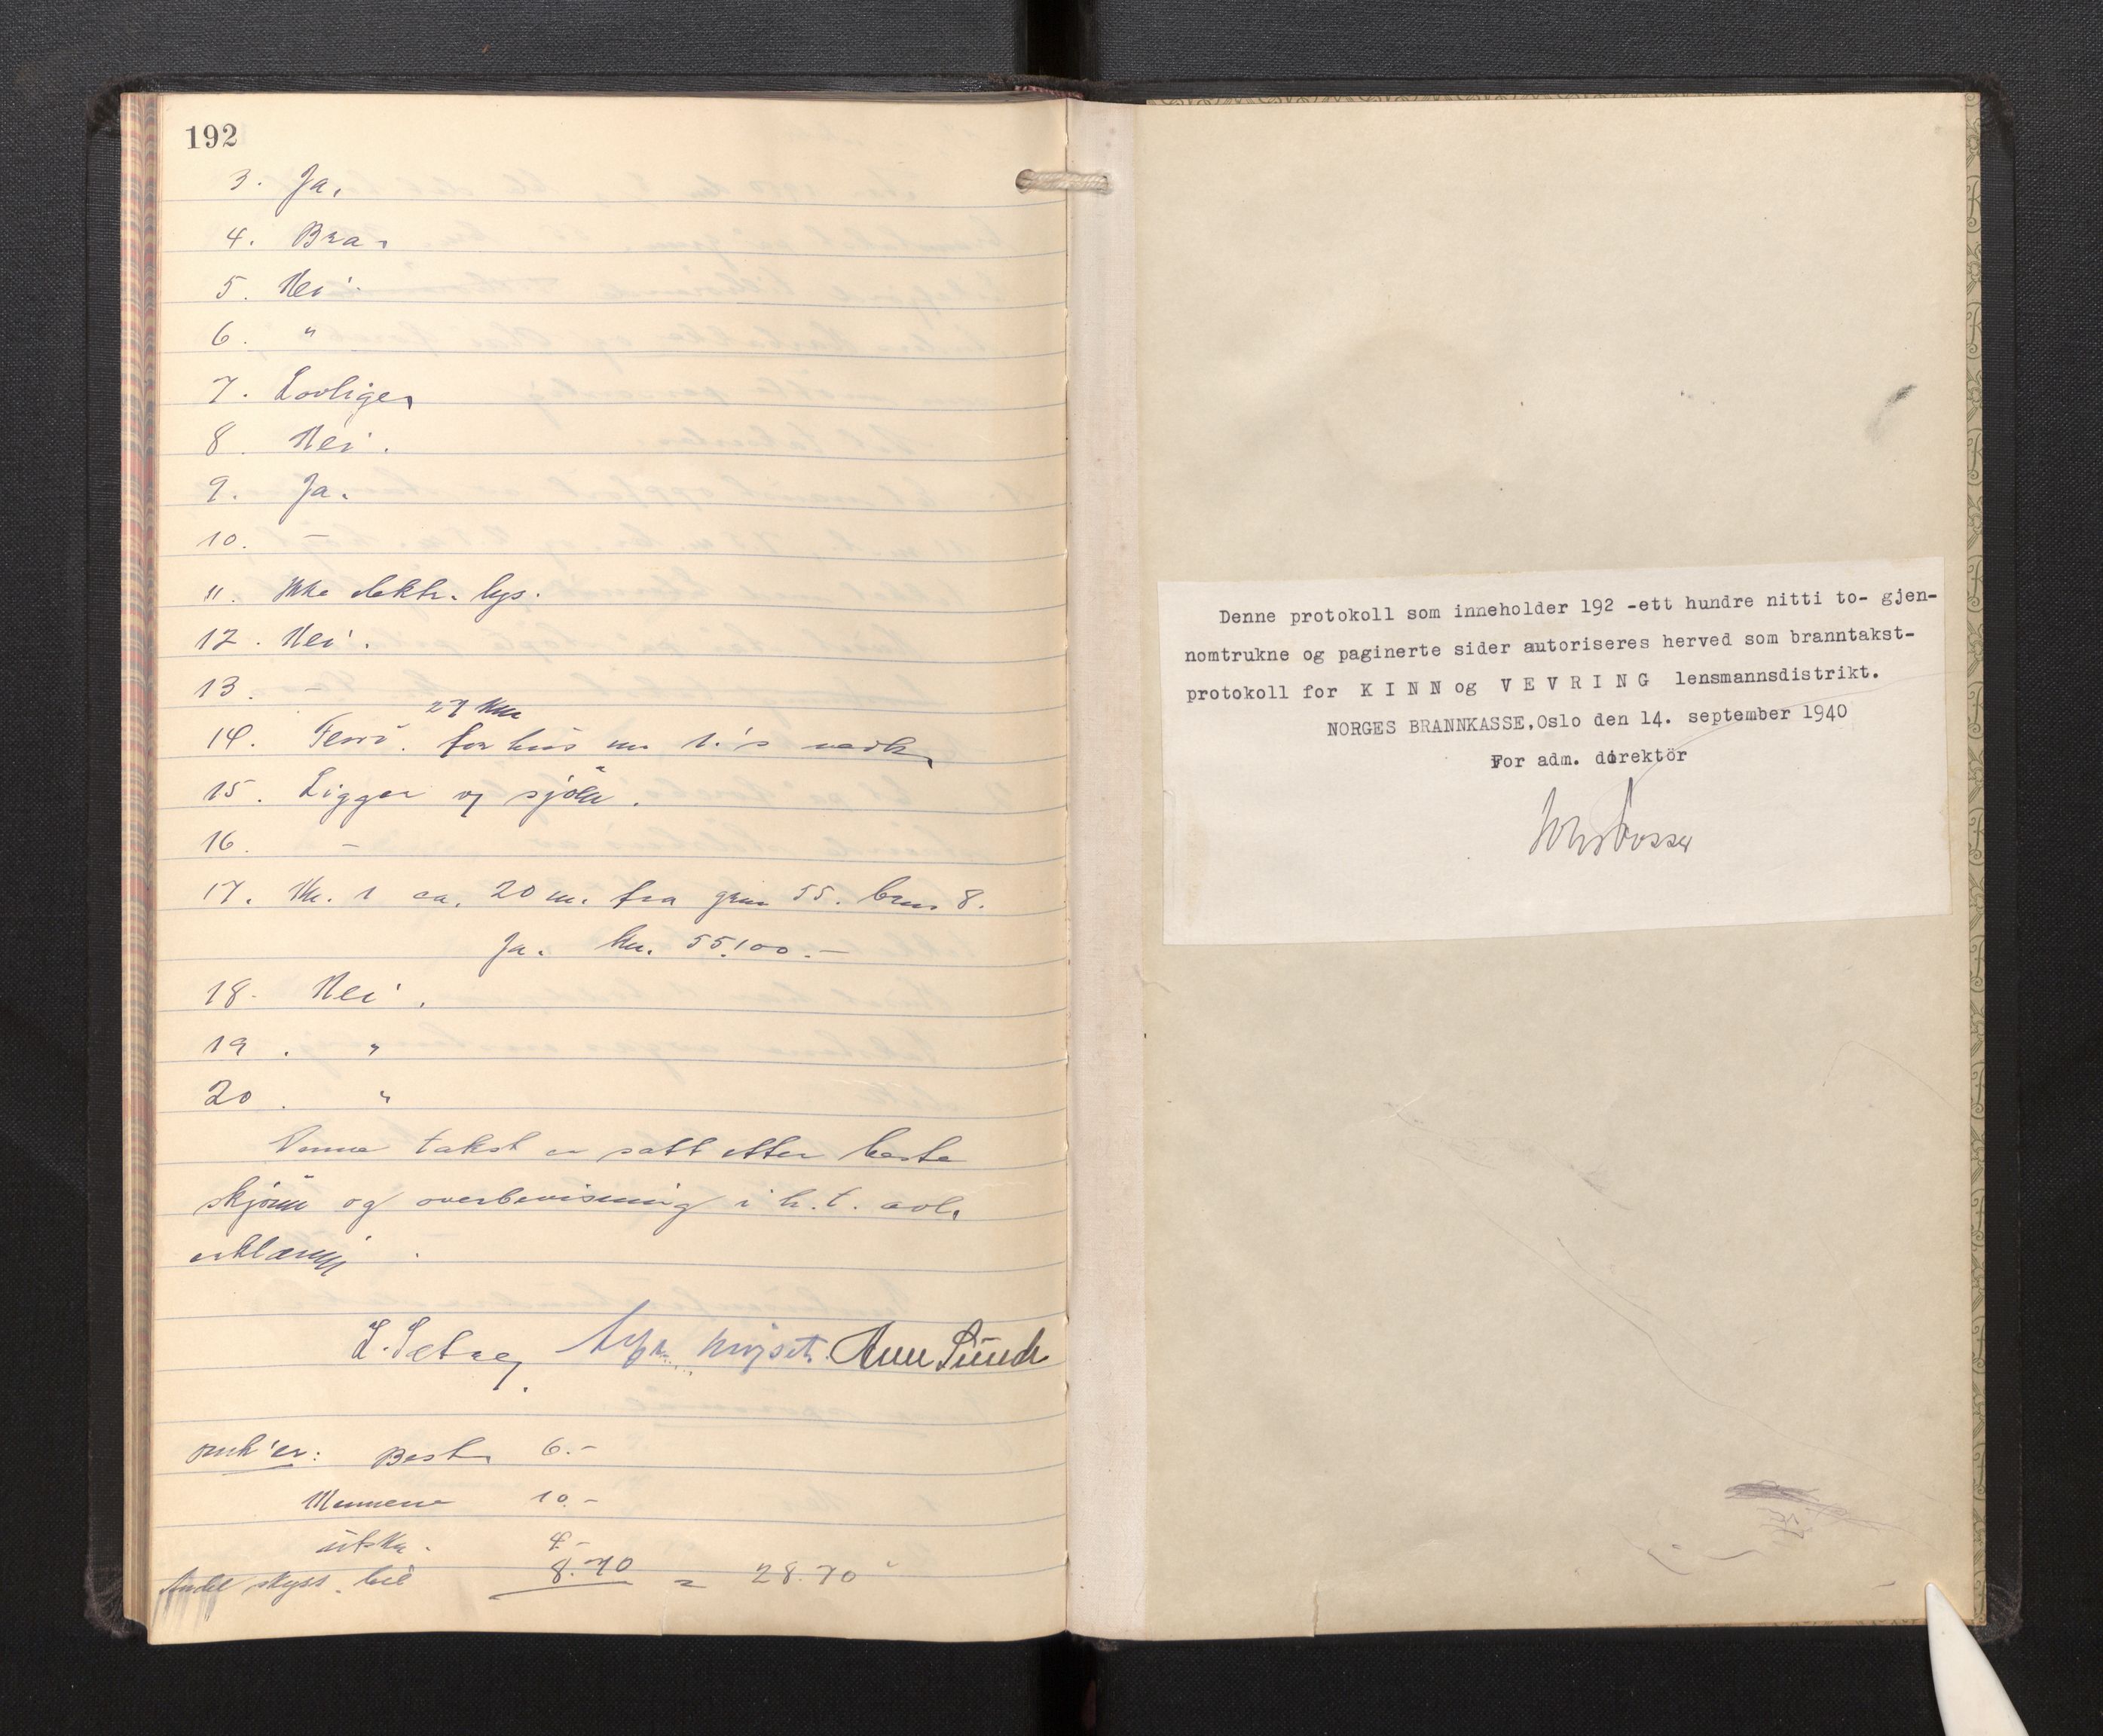 192
3. Ja.
4. Bra.
5. Nei.
6. "
7. Lovlige.
8. Nei.
9. Ja.
10. –
11. Ikke elektr. lys.
12. Nei.
13. –
27 km
14. for hus nr 1.'s vedk.
15. Ligger v/ sjøen.
16. –
17. Nr. 1 ca. 20 m. fra gnr 55. bnr 8.
Ja. kr. 55.100.–
18. Nei.
19. "
20. "
Denne takst er satt etter beste
skjønn og overbevisning i h.t. avl.
erklæring.
L. Sætre,
Best. 6.–
Mennene 10.–
utskr. 4.–
Andel skyss. bil 8.70 = 28.70
Denne protokoll som inneholder 192 -ett hundre nitti to- gjen-
nomtrukne og paginerte sider autoriseres herved som branntakst-
protokoll for K I N N og V E V R I N G lensmannsdistrikt.
NORGES BRANNKASSE,Oslo den 14. september 1940
For adm. direktör